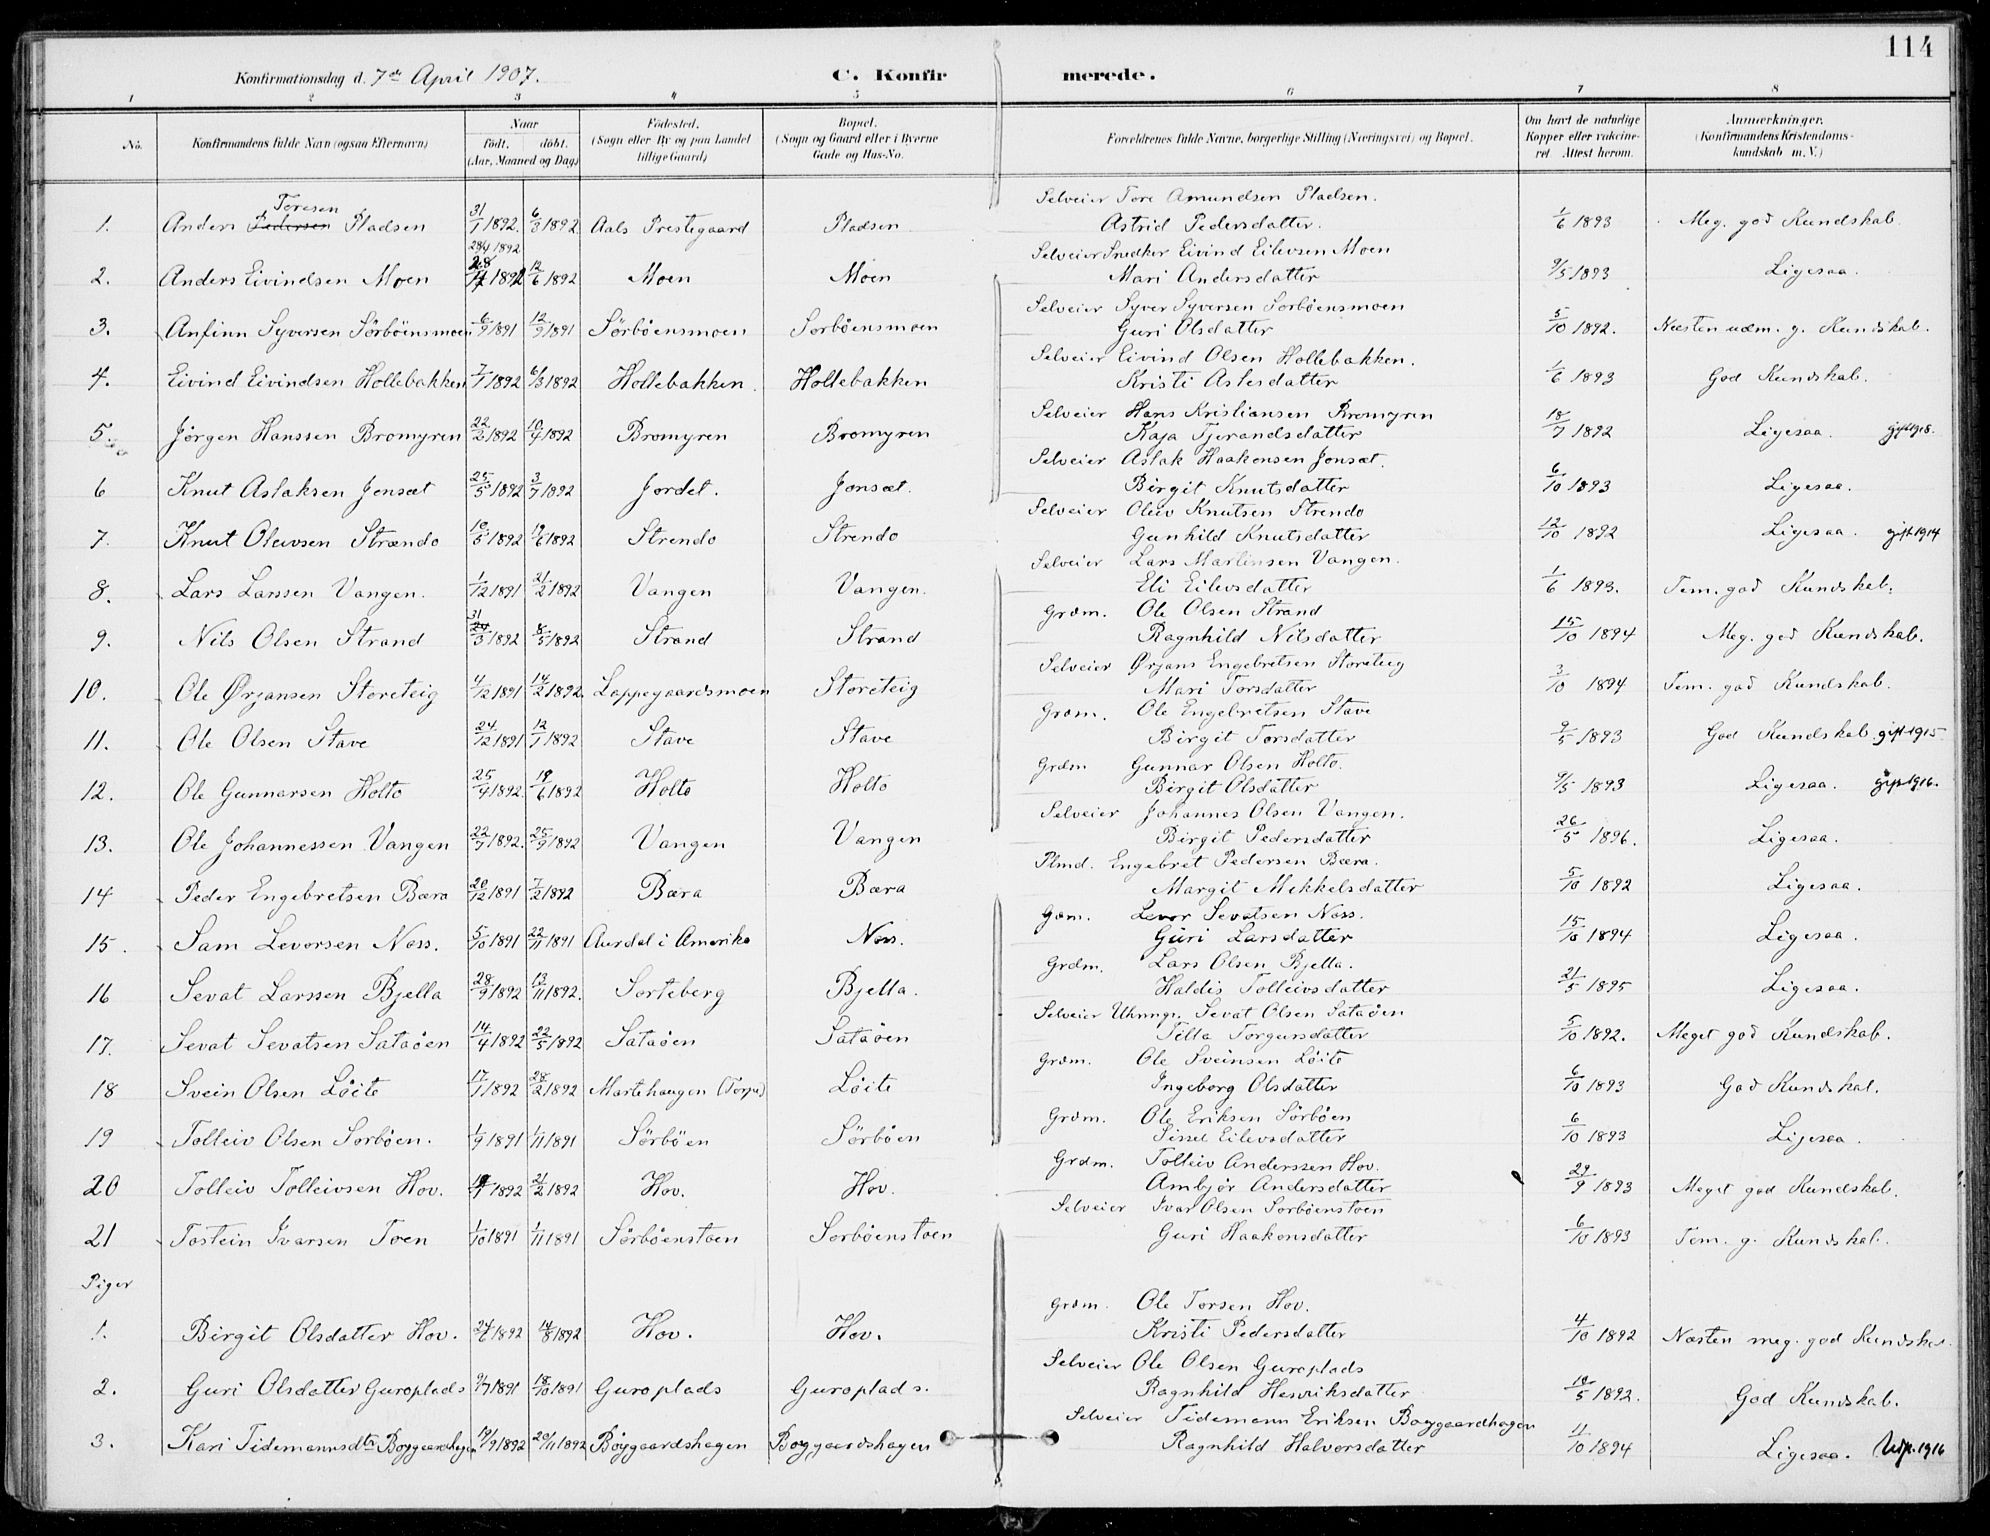 114
Konfirmationsdag d. 7de April 1907. C. Konfirmerede.
1 2 3 4 5 6 7 8
No. Konfirmandens fulde Navn (ogsaa Efternavn) Naar født. døbt. (Aar, Maaned og Dag) Fødested. (Sogn eller By og paa Landet tillige Gaard) Bopæl. (Sogn og Gaard eller i Byerne Gade og Hus-No. Forældrenes fulde Navne, borgerlige Stilling (Næringsvei) og Bopæl. Om havt de naturlige Kopper eller vakcineret. Attest herom. Anmærkninger. (Konfirmandens Kristendomskundskab m. V.)
Toresen Selveier Tore Amundsen Pladsen.
1. Anders Pedersen Pladsen 31/1 1892. 6/3 1892 Aals Prestegaard Pladsen Astrid Pedersdatter. 1/6 1893 Meg. god Kundskab.
28/4 1892 Selveier Snedker Eivind Eilevsen Moen
2. Anders Eivindsen Moen 1892 12/6 1892 Moen Moen Mari Andersdatter 9/5 1893 Ligesaa.
Selveier Syver Syversen Sorbøensmoen
3. Anfinn Syversen Sørbøensmoen 6/9 1891 12/9 1891 Sørbøensmoen Sorbøensmoen Guri Olsdatter 5/10 1892. Næsten udm. g. Kundskab.
Selveier Eivind Olsen Hollebakken.
4. Eivind Eivindsen Hollebakken 7/1 1892 6/3 1892 Hollebakken. Hollebakken Kristi Aslesdatter 1/6 1893 God Kundskab.
Selveier Hans Kristiansen Bromyren
5. Jørgen Hanssen Bromyren 22/2 1892 10/4 1892 Bromyren Bromyren Kaja Tjerandsdatter 18/7 1892 Ligesaa. gift 1918.
Selveier Aslak Haakonsen Jonsæt.
6 Knut Aslaksen Jonsæt 25/5 1892 3/7 1892 Jordet. Jonsæt. Birgit Knutsdatter 6/10 1893 Ligesaa.
Selveier Oleiv Knutsen Strendo
7. Knut Oleivsen Strændo 10/5 1892 19/6 1892 Strendo Strendo Gunhild Knutsdatter 12/10 1892 Ligesaa. gift 1914
Selveier Lars Martinsen Vangen.
8. Lars Larssen Vangen. 1/12 1891 21/2 1892 Vangen Vangen. Eli Eilevsdatter 1/6 1893. Tem. god Kundskab.
31 Grdm. Ole Olsen Strand
9. Nils Olsen Strand /3 1892 8/5 1892 Strand Strand Ragnhild Nilsdatter 15/10 1894 Meg. god Kundskab.
Selveier Ørjans Engebretsen Storeteig
10. Ole Ørjansen Storeteig 4/12 1891 14/2 1892. Loppegaardsmoen Storeteig Mari Torsdatter 3/10 1894 Tem. god Kundskab.
Grdm. Ole Engebretsen Stave
11. Ole Olsen Stave 24/12 1891 12/1 1892 Stave Stave Birgit Torsdatter 9/5 1893 God Kundskab gift 1915
Grdm Gunnar Olsen Holto.
12. Ole Gunnarsen Holto 25/4 1892. 19/6 1892 Holto Holto Birgit Olsdatter 9/5 1893 Ligesaa. gift 1916.
Selveier Johannes Olsen Vangen.
13. Ole Johannessen Vangen 22/7 1892. 25/9 1892 Vangen Vangen Birgit Pedersdatter 26/5 1896. Ligesaa.
Plmd. Engebret Pedersen Bæra.
14 Peder Engebretsen Bæra 20/12 1891 7/2 1892 Bæra Bæra Margit Mikkelsdatter 5/10 1892 Ligesaa.
Gdm. Levor Sevatsen Næss.
15. Sam Levorsen Næss. 5/10 1891 22/11 1891 Aurdal i Amerika Næss. Guri Larsdatter 15/10 1894 Ligesaa.
Grdm. Lars Olsen Bjella.
16 Sevat Larssen Bjella 28/9 1892 13/11 1892. Sorteberg Bjella. Haldis Tolleivsdatter 21/5 1895 Ligesaa.
Selveier Uhrmgr. Sevat Olsen Sataøen
17. Sevat Sevatsen Sataøen 14/4 1892 22/5 1892 Sataøen Sataøen Tilla Torgersdatter 5/10 1892. Meget god Kundskab.
Grdm. Ole Sveinsen Løite
18 Svein Olsen Løite 17/1 1892 28/2 1892 Martehaugen (Torpe) Løite Ingeborg Olsdatter 6/10 1893 God Kundskab.
Grdm. Ole Eriksen Sørbøen
19 Tolleiv Olsen Sorbøen. 1/9 1891 1/11 1891 Sørbøen Sørbøen Sissel Eilevsdatter 6/10 1893 Ligesaa.
Grdm. Tolleiv Anderssen Hov.
20 Tolleiv Tolleivsen Hov. 1892 21/2 1892 Hov. Hov. Ambjør Andersdatter 29/9 1893 Meget god Kundskab.
Selveier Ivar Olsen Sorbøenstoen
21 Tostein Ivarsen Toen 1/10 1891 1/11 1891 Sørbøenstoen Sorbøenstoen Guri Haakonsdatter 6/10 1893 Tem. g. Kundskab.
Piger
Grdm. Ole Torsen Hov.
1. Birgit Olsdatter Hov. 24/6 1892 14/8 1892 Hov. Hov. Kristi Pedersdatter 4/10 1892 Næsten meg. god Kundskab.
Selveier Ole Olsen Guroplads
2. Guri Olsdatter Guroplads 9/7 1891 18/10 1891 Guroplads Guroplads. Ragnhild Henriksdatter 10/5 1892. God Kundskab.
Selveier Tidemann Eriksen Bøygaardhagen
3. Kari Tidemannsdtr Bøygaardhagen 19/9 1892 20/11 1892 Bøygaardshagen Bøygaardshagen Ragnhild Halvorsdatter 11/10 1894 Ligesaa. 1916